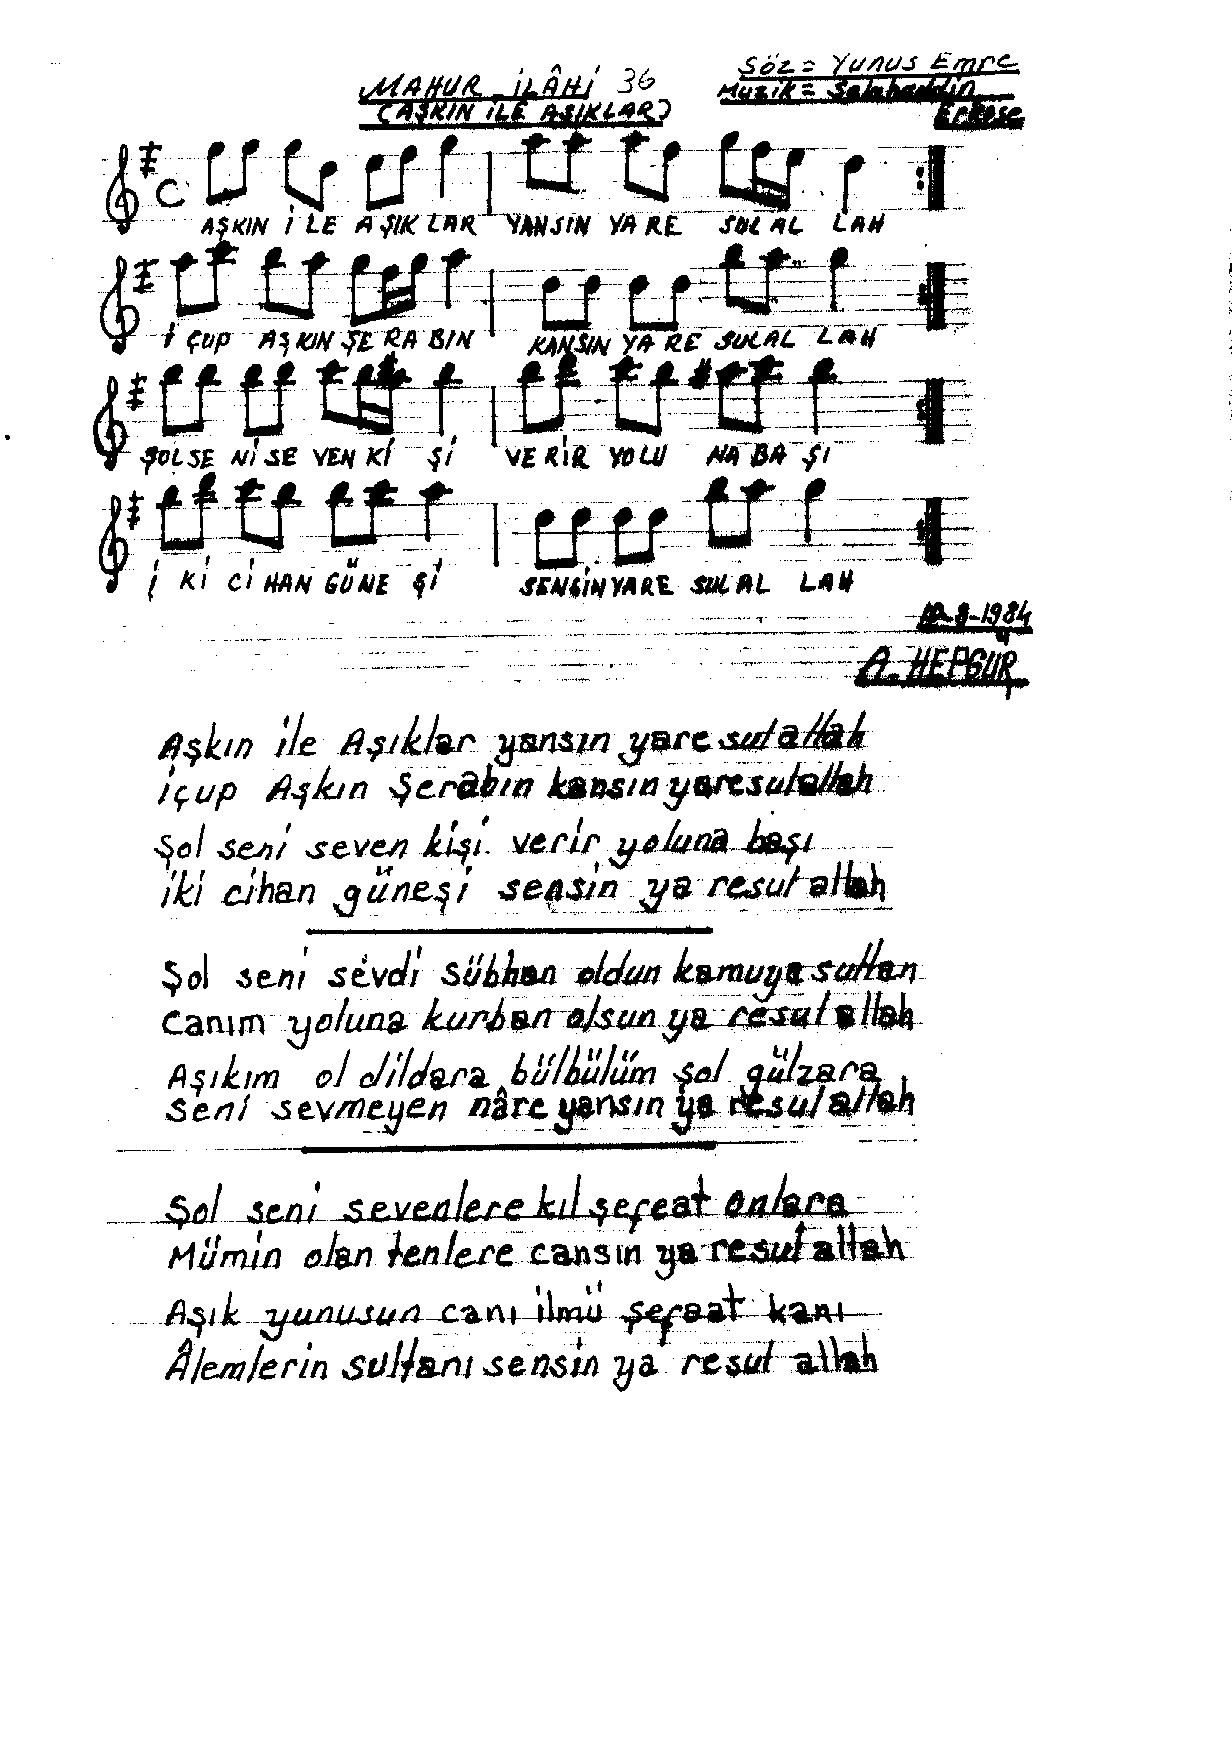 MAHUR - İLÂHİ 36
(AŞKIN İLE AŞIKLAR)
Söz = Yunus Emre
Muzik = Salahaddin
Erköse
AŞKIN İ LE AŞIK LAR YANSIN YA RE SUL AL LAH
İ ÇUP AŞKIN ŞE RA BIN KANSIN YA RE SULAL LAH
ŞOL SE Nİ SE VEN Kİ Şİ VE RİR YOLU NA BA ŞI
İ Kİ Cİ HAN GÜNE Şİ SENSİN YARE SUL AL LAH
8-1984
A. HEPGÜR
Aşkın ile Aşıklar yansın yare sulallah
içup Aşkın Şerabın kansın yaresulallah
Şol seni seven kişi. verir yoluna başı
iki cihan güneşi sensin ya resul allah
Şol seni sevdi Sübhan oldun kamuya sultan
canım yoluna kurban olsun ya resul allah
Aşıkım ol dildara bülbülüm şol gülzara
seni sevmeyen nâre yansın ya resul allah
Şol seni sevenlere kıl şefeat onlara
Mümin olan tenlere cansın ya resul allah
Aşık yunusun canı ilmü şefaat kanı
Âlemlerin sultanı sensin ya resul allah